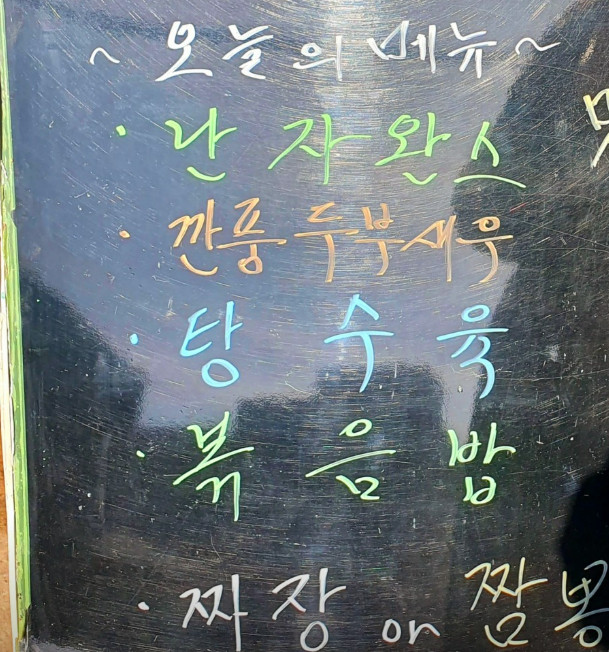 ~ 오늘의 메뉴 ~
· 난자완스
· 깐풍두부새우
· 탕수육
· 볶음밥
· 짜장 or 짬뽕